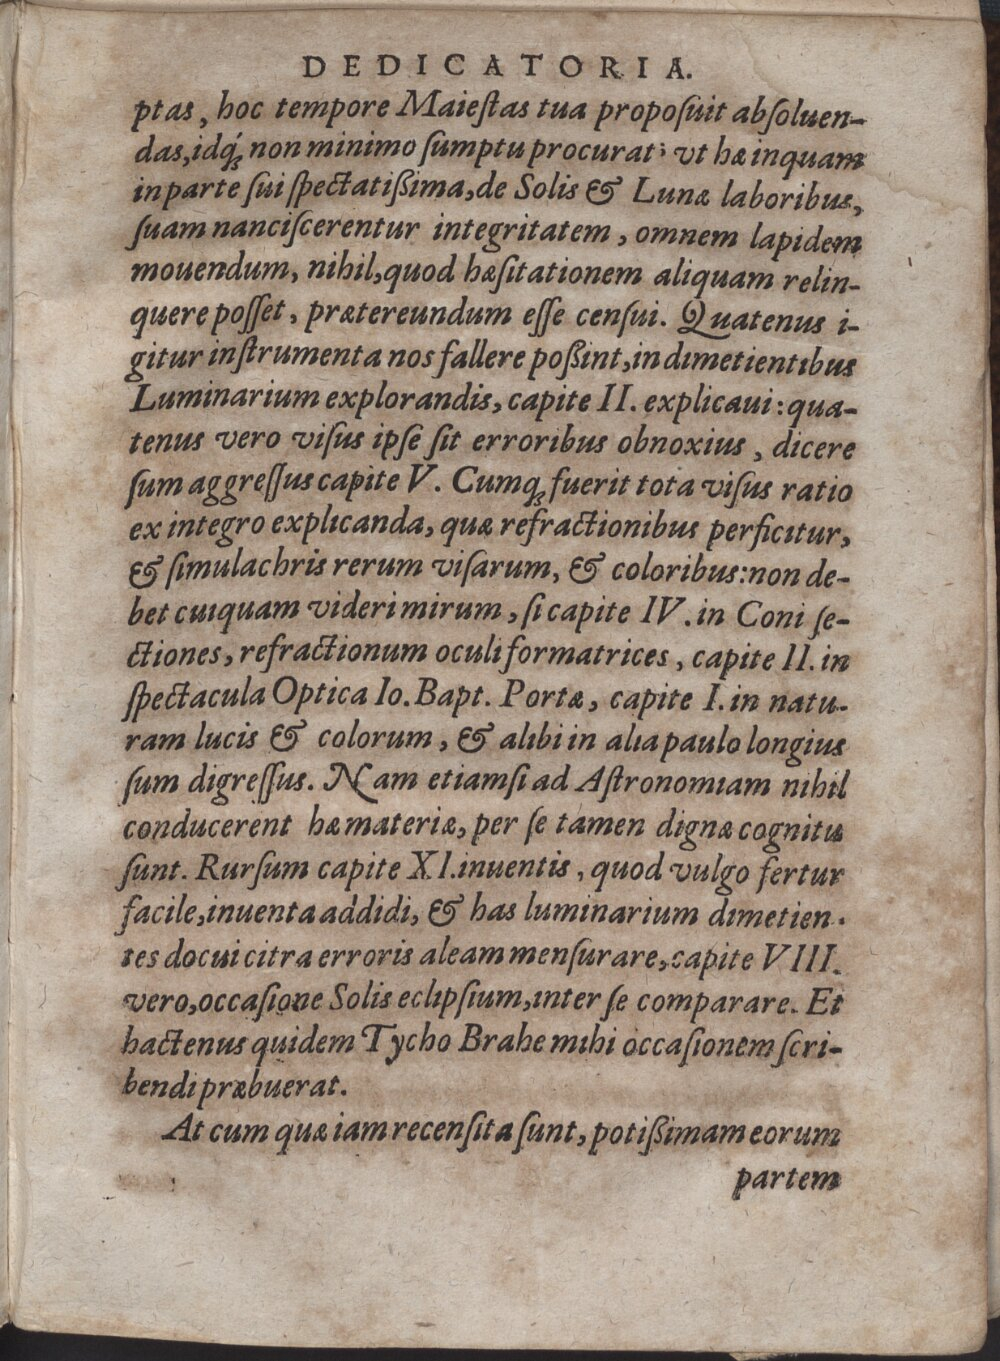 DEDICATORIA.
ptas, hoc tempore Maieſtas tua propoſuit abſoluen-
das, idq́; non minimo ſumptu procurat; vt hæ inquam
in parte ſui ſpectatiſſima, de Solis & Lunæ laboribus,
ſuam nanciſcerentur integritatem, omnem lapidem
mouendum, nihil, quod hæſitationem aliquam relin-
quere poſſet, prætereundum eſſe cenſui. Quatenus i-
gitur inſtrumenta nos fallere poßint, in dimetientibus
Luminarium explorandis, capite II. explicaui: qua-
tenus vero viſus ipſe ſit erroribus obnoxius, dicere
ſum aggreſſus capite V. Cumq; fuerit tota viſus ratio
ex integro explicanda, quæ refractionibus perficitur,
& ſimulachris rerum viſarum, & coloribus: non de-
bet cuiquam videri mirum, ſi capite IV. in Coni ſe-
ctiones, refractionum oculi formatrices, capite II. in
ſpectacula Optica Io. Bapt. Portæ, capite I. in natu-
ram lucis & colorum, & alibi in alia paulo longius
ſum digreſſus. Nam etiamſi ad Aſtronomiam nihil
conducerent hæ materiæ, per ſe tamen dignæ cognitu
ſunt. Rurſum capite XI. inuentis, quod vulgo fertur
facile, inuenta addidi, & has luminarium dimetien-
tes docui citra erroris aleam menſurare, capite VIII.
vero, occaſione Solis eclipſium, inter ſe comparare. Et
hactenus quidem Tycho Brahe mihi occaſionem ſcri-
bendi præbuerat.
At cum quæ iam recenſita ſunt, potißimam eorum
partem